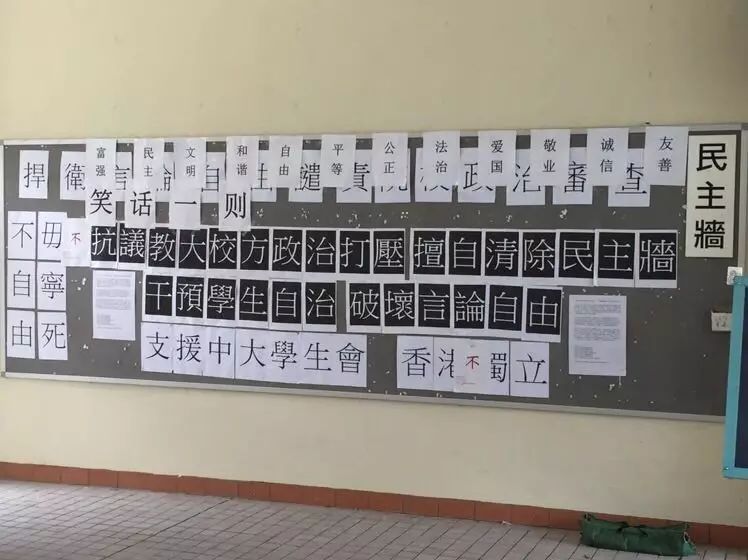 富强 民主 文明 和谐 自由 平等 公正 法治 爱国 敬业 诚信 友善
捍衛言論自由 譴責院校政治審查
笑话一则
民主牆
不自由
毋寧死
不
抗議教大校方政治打壓 擅自清除民主牆
干預學生自治 破壞言論自由
支援中大學生會 香港不獨立